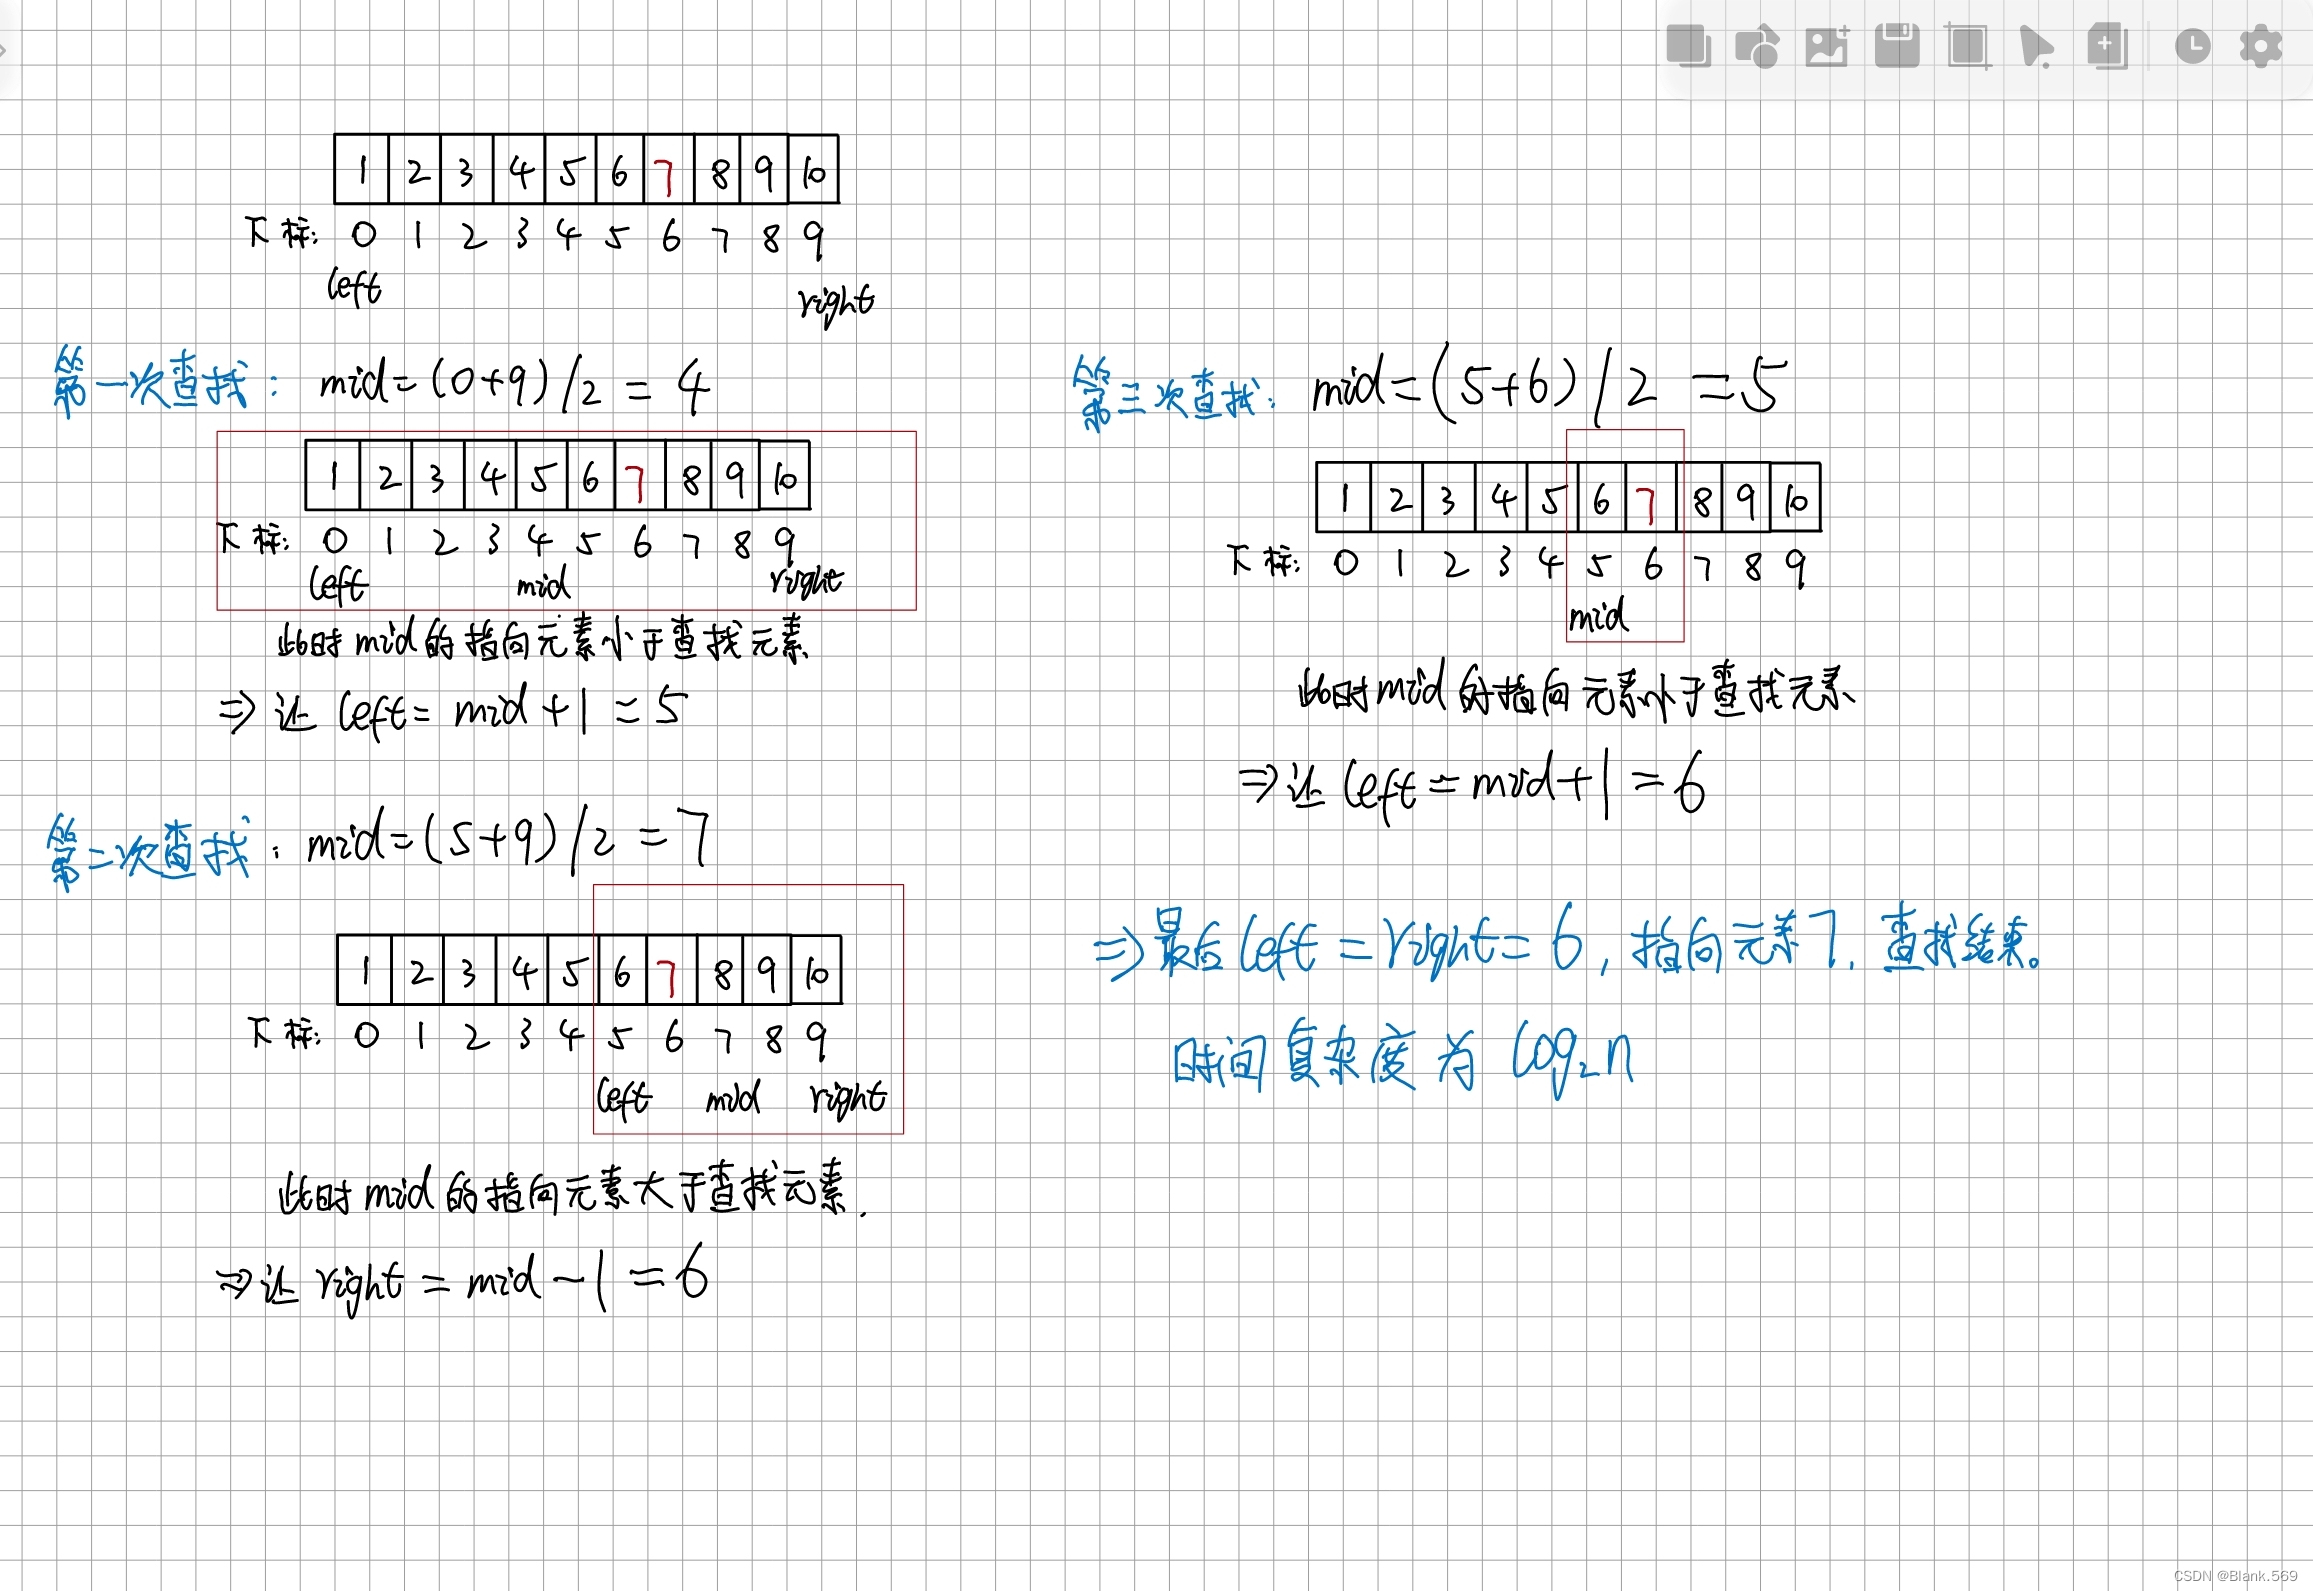 1 2 3 4 5 6 7 8 9 10
下标: 0 1 2 3 4 5 6 7 8 9
left right
第一次查找: mid=(0+9)/2=4
1 2 3 4 5 6 7 8 9 10
下标: 0 1 2 3 4 5 6 7 8 9
left mid right
此时mid的指向元素小于查找元素
⇒让left=mid+1=5
第二次查找: mid=(5+9)/2=7
1 2 3 4 5 6 7 8 9 10
下标: 0 1 2 3 4 5 6 7 8 9
left mid right
此时mid的指向元素大于查找元素.
⇒让right=mid-1=6
第三次查找: mid=(5+6)/2=5
1 2 3 4 5 6 7 8 9 10
下标: 0 1 2 3 4 5 6 7 8 9
mid
此时mid的指向元素小于查找元素
⇒让left=mid+1=6
⇒最后left=right=6,指向元素7.查找结束。
时间复杂度为log₂n
CSDN @Blank.569